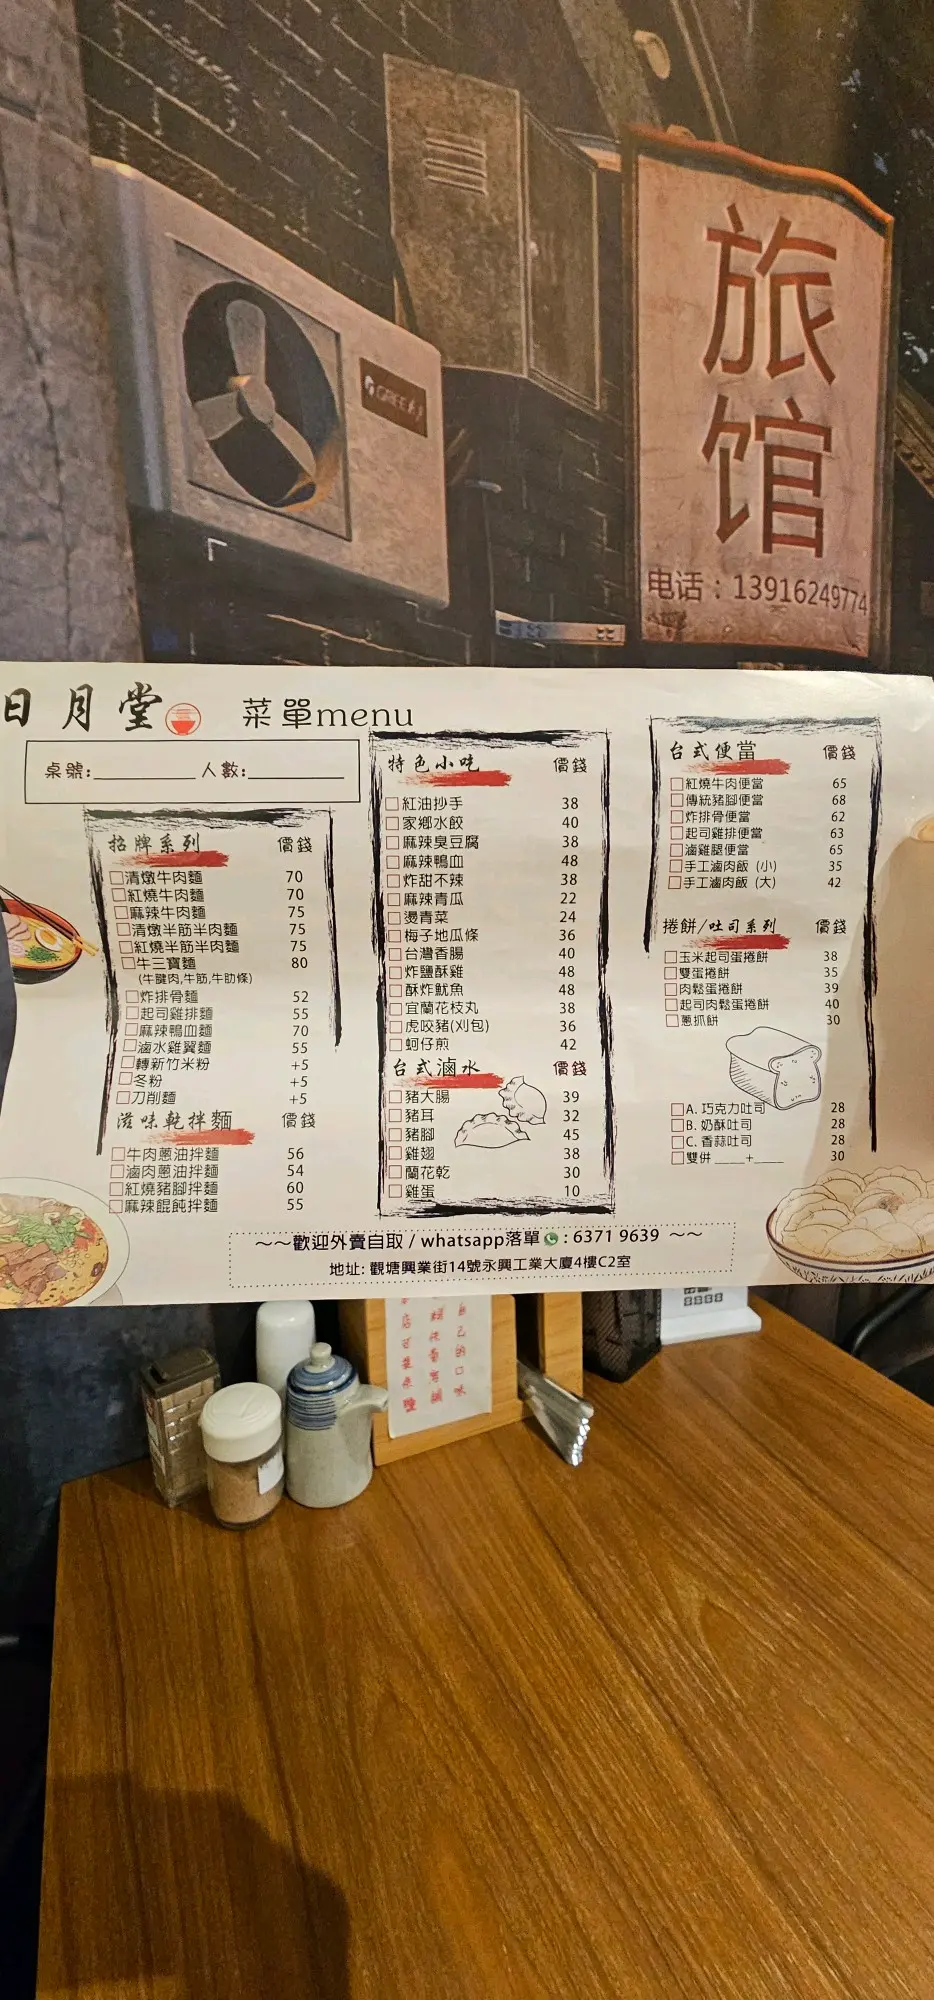 GREE
旅
馆
电话：13916249774
日月堂 菜單menu
桌號:________ 人數:________
招牌系列 價錢
清燉牛肉麵 70
紅燒牛肉麵 70
麻辣牛肉麵 75
清燉半筋半肉麵 75
紅燒半筋半肉麵 75
牛三寶麵 80
(牛腱肉,牛筋,牛肋條)
炸排骨麵 52
起司雞排麵 55
麻辣鴨血麵 70
滷水雞翼麵 55
轉新竹米粉 +5
冬粉 +5
刀削麵 +5
滋味乾拌麵 價錢
牛肉蔥油拌麵 56
滷肉蔥油拌麵 54
紅燒豬腳拌麵 60
麻辣餛飩拌麵 55
特色小吃 價錢
紅油抄手 38
家鄉水餃 40
麻辣臭豆腐 38
麻辣鴨血 48
炸甜不辣 38
麻辣青瓜 22
燙青菜 24
梅子地瓜條 36
台灣香腸 40
炸鹽酥雞 48
酥炸魷魚 48
宜蘭花枝丸 38
虎咬豬(刈包) 36
蚵仔煎 42
台式滷水 價錢
豬大腸 39
豬耳 32
豬腳 45
雞翅 38
蘭花乾 30
雞蛋 10
台式便當 價錢
紅燒牛肉便當 65
傳統豬腳便當 68
炸排骨便當 62
起司雞排便當 63
滷雞腿便當 65
手工滷肉飯 (小) 35
手工滷肉飯 (大) 42
捲餅/吐司系列 價錢
玉米起司蛋捲餅 38
雙蛋捲餅 35
肉鬆蛋捲餅 39
起司肉鬆蛋捲餅 40
蔥抓餅 30
A. 巧克力吐司 28
B. 奶酥吐司 28
C. 香蒜吐司 28
雙併 ____+____ 30
～～歡迎外賣自取 / whatsapp落單 : 6371 9639 ～～
地址: 觀塘興業街14號永興工業大廈4樓C2室
自己的口味